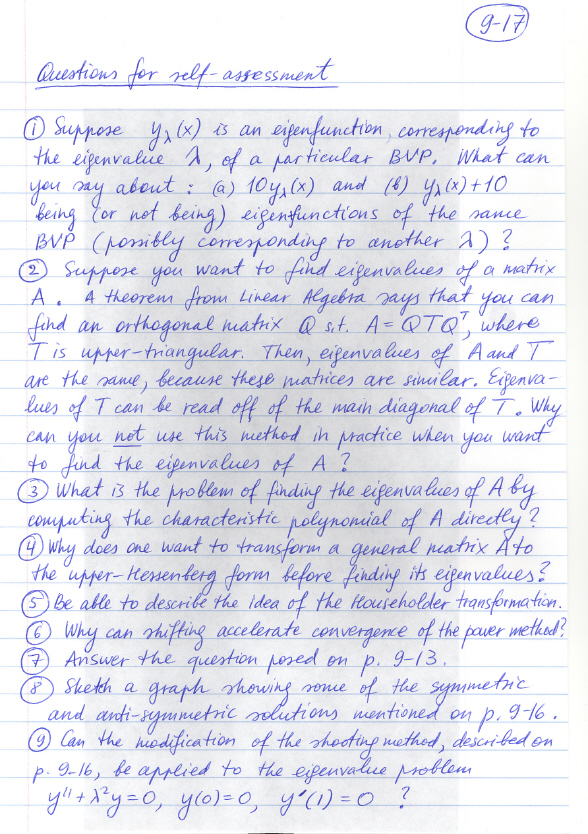 9-17
Questions for self-assessment
① Suppose y_λ(x) is an eigenfunction, corresponding to
the eigenvalue λ, of a particular BVP. What can
you say about : (a) 10y_λ(x) and (b) y_λ(x)+10
being (or not being) eigenfunctions of the same
BVP (possibly corresponding to another λ) ?
② Suppose you want to find eigenvalues of a matrix
A. A theorem from Linear Algebra says that you can
find an orthogonal matrix Q s.t. A = QTQᵀ, where
T is upper-triangular. Then, eigenvalues of A and T
are the same, because these matrices are similar. Eigenva-
lues of T can be read off of the main diagonal of T. Why
can you not use this method in practice when you want
to find the eigenvalues of A ?
③ What is the problem of finding the eigenvalues of A by
computing the characteristic polynomial of A directly?
④ Why does one want to transform a general matrix A to
the upper-Hessenberg form before finding its eigenvalues?
⑤ Be able to describe the idea of the Householder transformation.
⑥ Why can shifting accelerate convergence of the power method?
⑦ Answer the question posed on p. 9-13.
⑧ Sketch a graph showing some of the symmetric
and anti-symmetric solutions mentioned on p. 9-16.
⑨ Can the modification of the shooting method, described on
p. 9-16, be applied to the eigenvalue problem
y'' + λ²y = 0, y(0) = 0, y'(1) = 0 ?